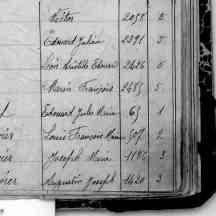 Victor 2058 5
Edouard Julien 2391 5
Léon Aristide Edouard 2426 5
Marie François 2485 5
Edouard Jules Marie 65 1
Louis François Marie 507 2
Joseph Marie 1186 3
Augustin Joseph 1420 3